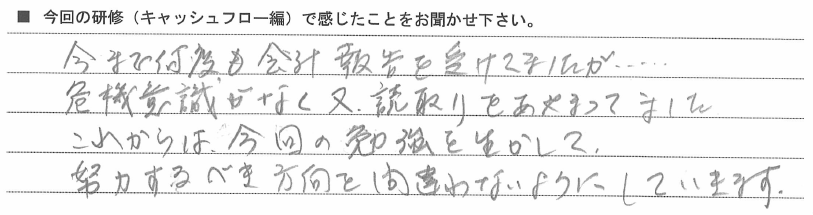 ■ 今回の研修（キャッシュフロー編）で感じたことをお聞かせ下さい。
今まで何度も会計報告を受けてましたが……
危機意識がなく又、読取りをあやまってました
これからは、今回の勉強を生かして、
努力するべき方向を間違わないようにしていきます。